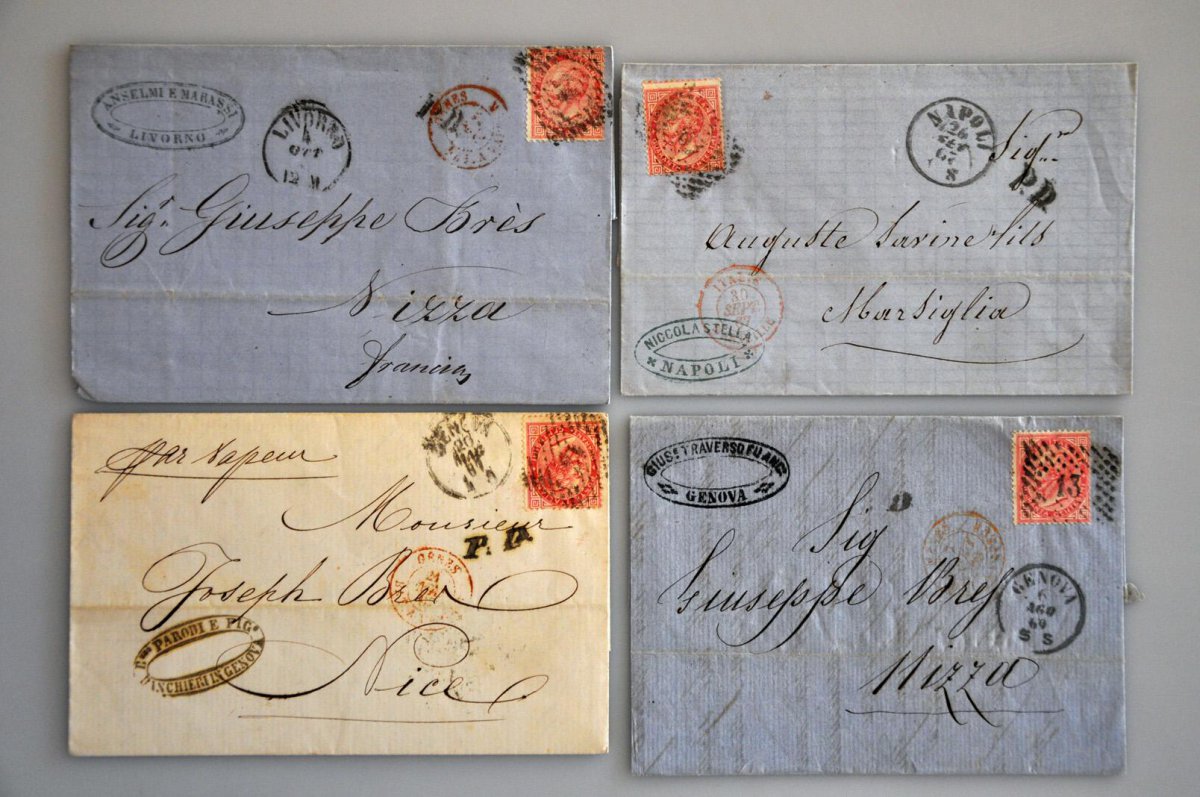 ANSELMI E MARASSI
LIVORNO
LIVORNO
4
OTT
12 M
Sigr. Giuseppe Brès
Nizza
francia
NAPOLI
26
SET
8
Sigr.
P.D.
Auguste Savine Fils
Marsiglia
ITALIE
30
SEPT
NICCOLA STELLA
NAPOLI
par Vapeur
GENOVA
Monsieur
P. D.
Joseph Bres
Nice
PARODI E FIG.
BANCHIERI IN GENOVA
GIUSE. TRAVERSO FU ANGO.
GENOVA
13
Sig
Giuseppe Bres
Nizza
GENOVA
6
AGO
69
5 S